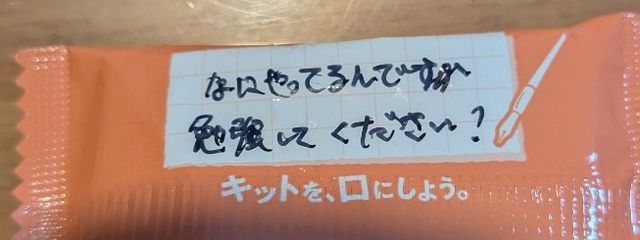 なにやってるんですか
勉強してください?
キットを、口にしよう。